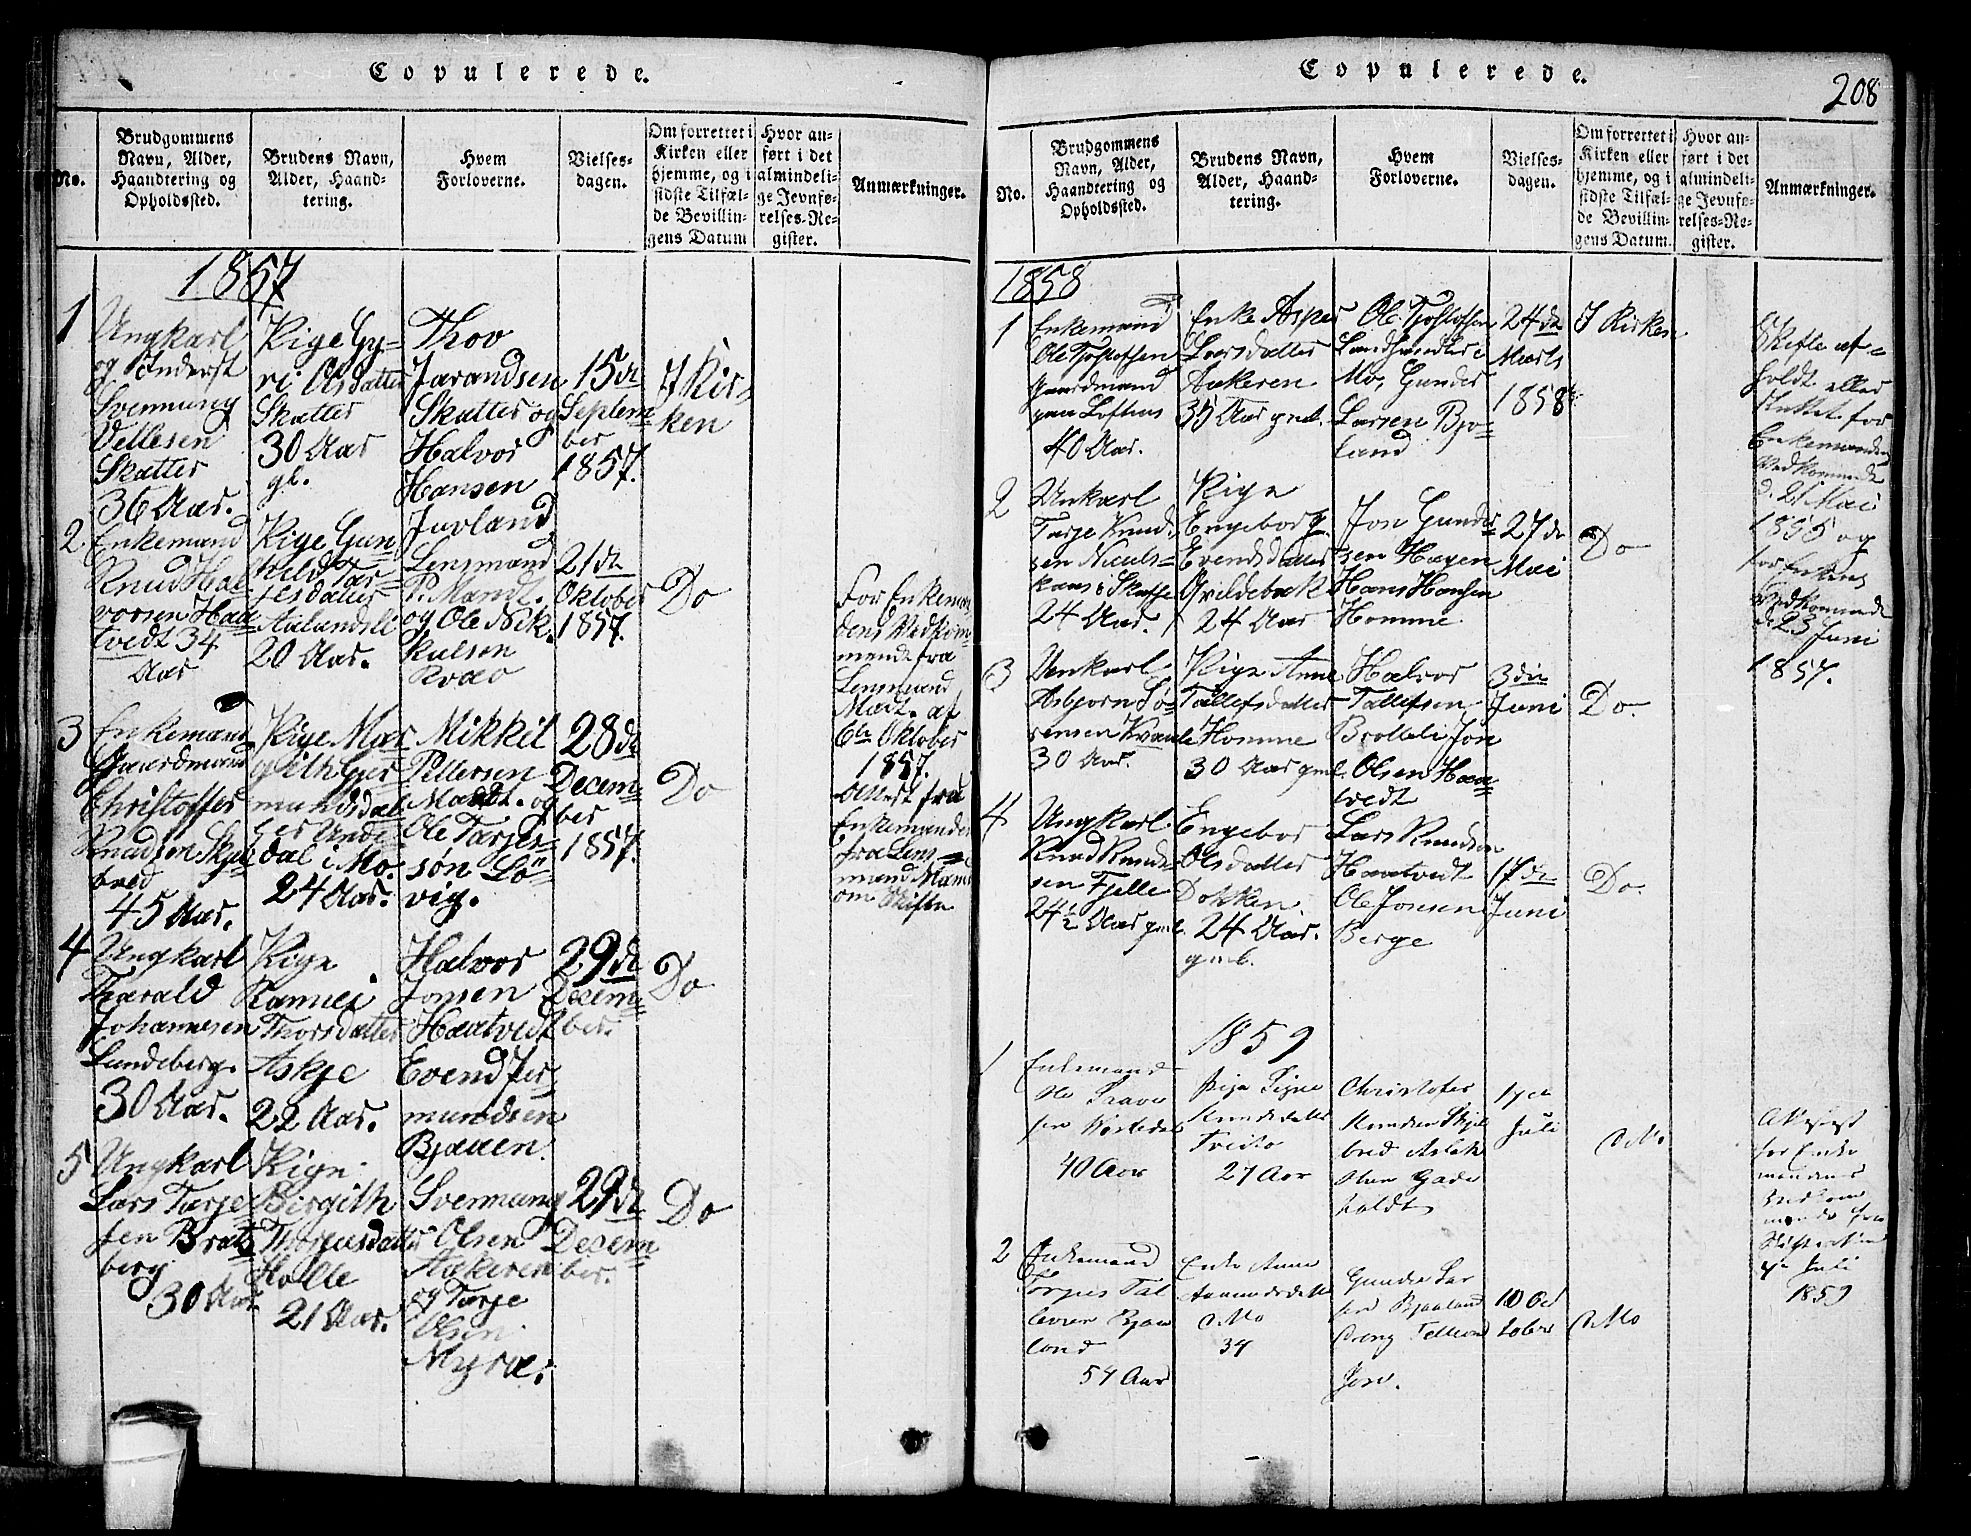 Copulerede.
No.
Brudgommens
Navn, Alder,
Haandtering og
Opholdssted.
Brudens Navn,
Alder, Haand-
tering.
Hvem
Forloverne.
Vielses-
dagen.
Om forrettet i
Kirken eller
hjemme, og i
sidste Tilfæl-
de Bevillin-
gens Datum
Hvor an-
ført i det
almindeli-
ge Jevnfø-
relses-Re-
gister.
Anmærkninger.
1857
1
Ungkarl
og Inderst
Svennung
Vellesen
Skatter
36 Aar.
Pige Gy-
ri Olsdatter
Skatter
30 Aar
gl.
Thov
Jarandsen
Skatter og
Halvor
Hansen
Juvland
15de
Septem
ber
1857.
I Kir-
ken
2
Enkemand
Knud Hal-
vorsen Haa
tvedt 34
Aar
Pige Gun
hild Tar-
jesdatter
Aalandsli
20 Aar.
Lensmand
P. Mandt.
og Ole Nik.
kulsen
21de
Oktober
1857.
Do
For Enkeman
dens Vedkom
mende fra
Lensmand
Madt. af
6te Oktober
1857.
3
Enkemand
Gaardmand
Christoffer
Knudsen Skjel
bred
45 Aar.
Pige Mar
gith Gjer
mundsdat
ter Unde
dal i Mo.
24 Aar.
Mikkil
Pettersen
Mandt. og
Ole Tarjes-
søn Lö-
vig.
28de
Decem-
ber
1857.
Do
Attest fra
Enkemanden
fra Lens-
mand Mand
om Skifte
4
Ungkarl
Tharald
Johannesen
Lundeberg.
30 Aar.
Pige
Ramnei
Thorsdatter
Askje
22 Aar.
Halvor
Jonsen
Haatvedt
Evend Jer
mundsen
Bjaaen.
29de
Decem-
ber.
Do
5
Ungkarl
Lars Tarje
sen Brats
berg
30 Aar
Pige
Birgith
Thorgusdatter
Holle
21 Aar.
Svennung
Olsen
Aakeren
og Tarje
Olsen
Myra.
29de
Decem
ber.
Do
Copulerede.
208
No.
Brudgommens
Navn, Alder,
Haandtering og
Opholdssted.
Brudens Navn,
Alder, Haand-
tering.
Hvem
Forloverne.
Vielses-
dagen.
Om forrettet i
Kirken eller
hjemme, og i
sidste Tilfæl-
de Bevillin-
gens Datum.
Hvor an-
ført i det
almindeli-
ge Jevnfø-
relses-Re-
gister.
Anmærkninger.
1858
1
Enkemand
Ole Tjostofsen
Gaardmand
paa Lofthus
40 Aar.
Enke Asper
Larsdatter
Aakeren
35 Aar gml.
Ole Tjostofsen
Landhandler i
Mo, Gunder
Larsen Bjo-
land
24de
Marts
1858
I Kirken
Skifte af-
holdt eller
slutet for
Enkemandens
Vedkomende
d. 21 Mai
1855 og
for Enkens
Vedkomende
d. 23 Juni
1857.
2
Unkarl
Tarje Knud
sen Nauls-
kaas i Skafse
24 Aar.
Pige
Engeborg
Evendsdatter
Qvildebæk
24 Aar
Jon Gunder
sen Hagen
Hans Hansen
Homme.
27de
Mai
Do
3
Unkarl
Asbjorn Sö-
rensen Kvaale
30 Aar.
Pige Anne
Tallefsdatter
Homme
30 Aar gml.
Halvor
Tallefsen
Brotteli Jon
Olsen Haa-
tvedt
3die
Juni
Do.
4
Ungkarl
Knud Knud
sen Fjelle
24½ Aar gml.
Engebor
Olsdatter
Dokken.
24 Aar.
gml.
Lars Knudsen
Haatvedt
Ole Jonsen
Berge
17de
Juni
Do.
1859
1
Enkemand
Ole Grave
sen
40 Aar
Pige Signe
Knudsdatter
Tveito
27 Aar
Christofer
Knudsen Skjel
bred Aslak
Olsen Gade
holdt
Juli
Mo
Attest
for Enke
mandens
Vedkom
mende fra
Juli
1859
2
Enkemand
Torjus Tal
levsen Bjaa
land
54 Aar
Enke Anne
Aamundsdatter
Mo
34
Gunder Lar
sen Bjaaland
Tellevs
Jore.
10 Oc
tober
Mo